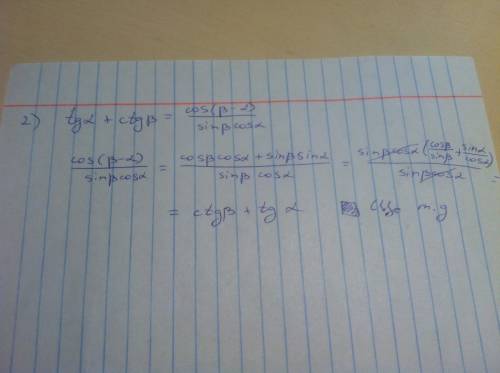 2) tgα + ctgβ = cos(β-α) / sinβcosα
cos(β-α) / sinβcosα = cosβcosα + sinβsinα / sinβ cosα = sinβcosα (cosβ/sinβ + sinα/cosα) / sinβcosα =
= ctgβ + tg α m.g.